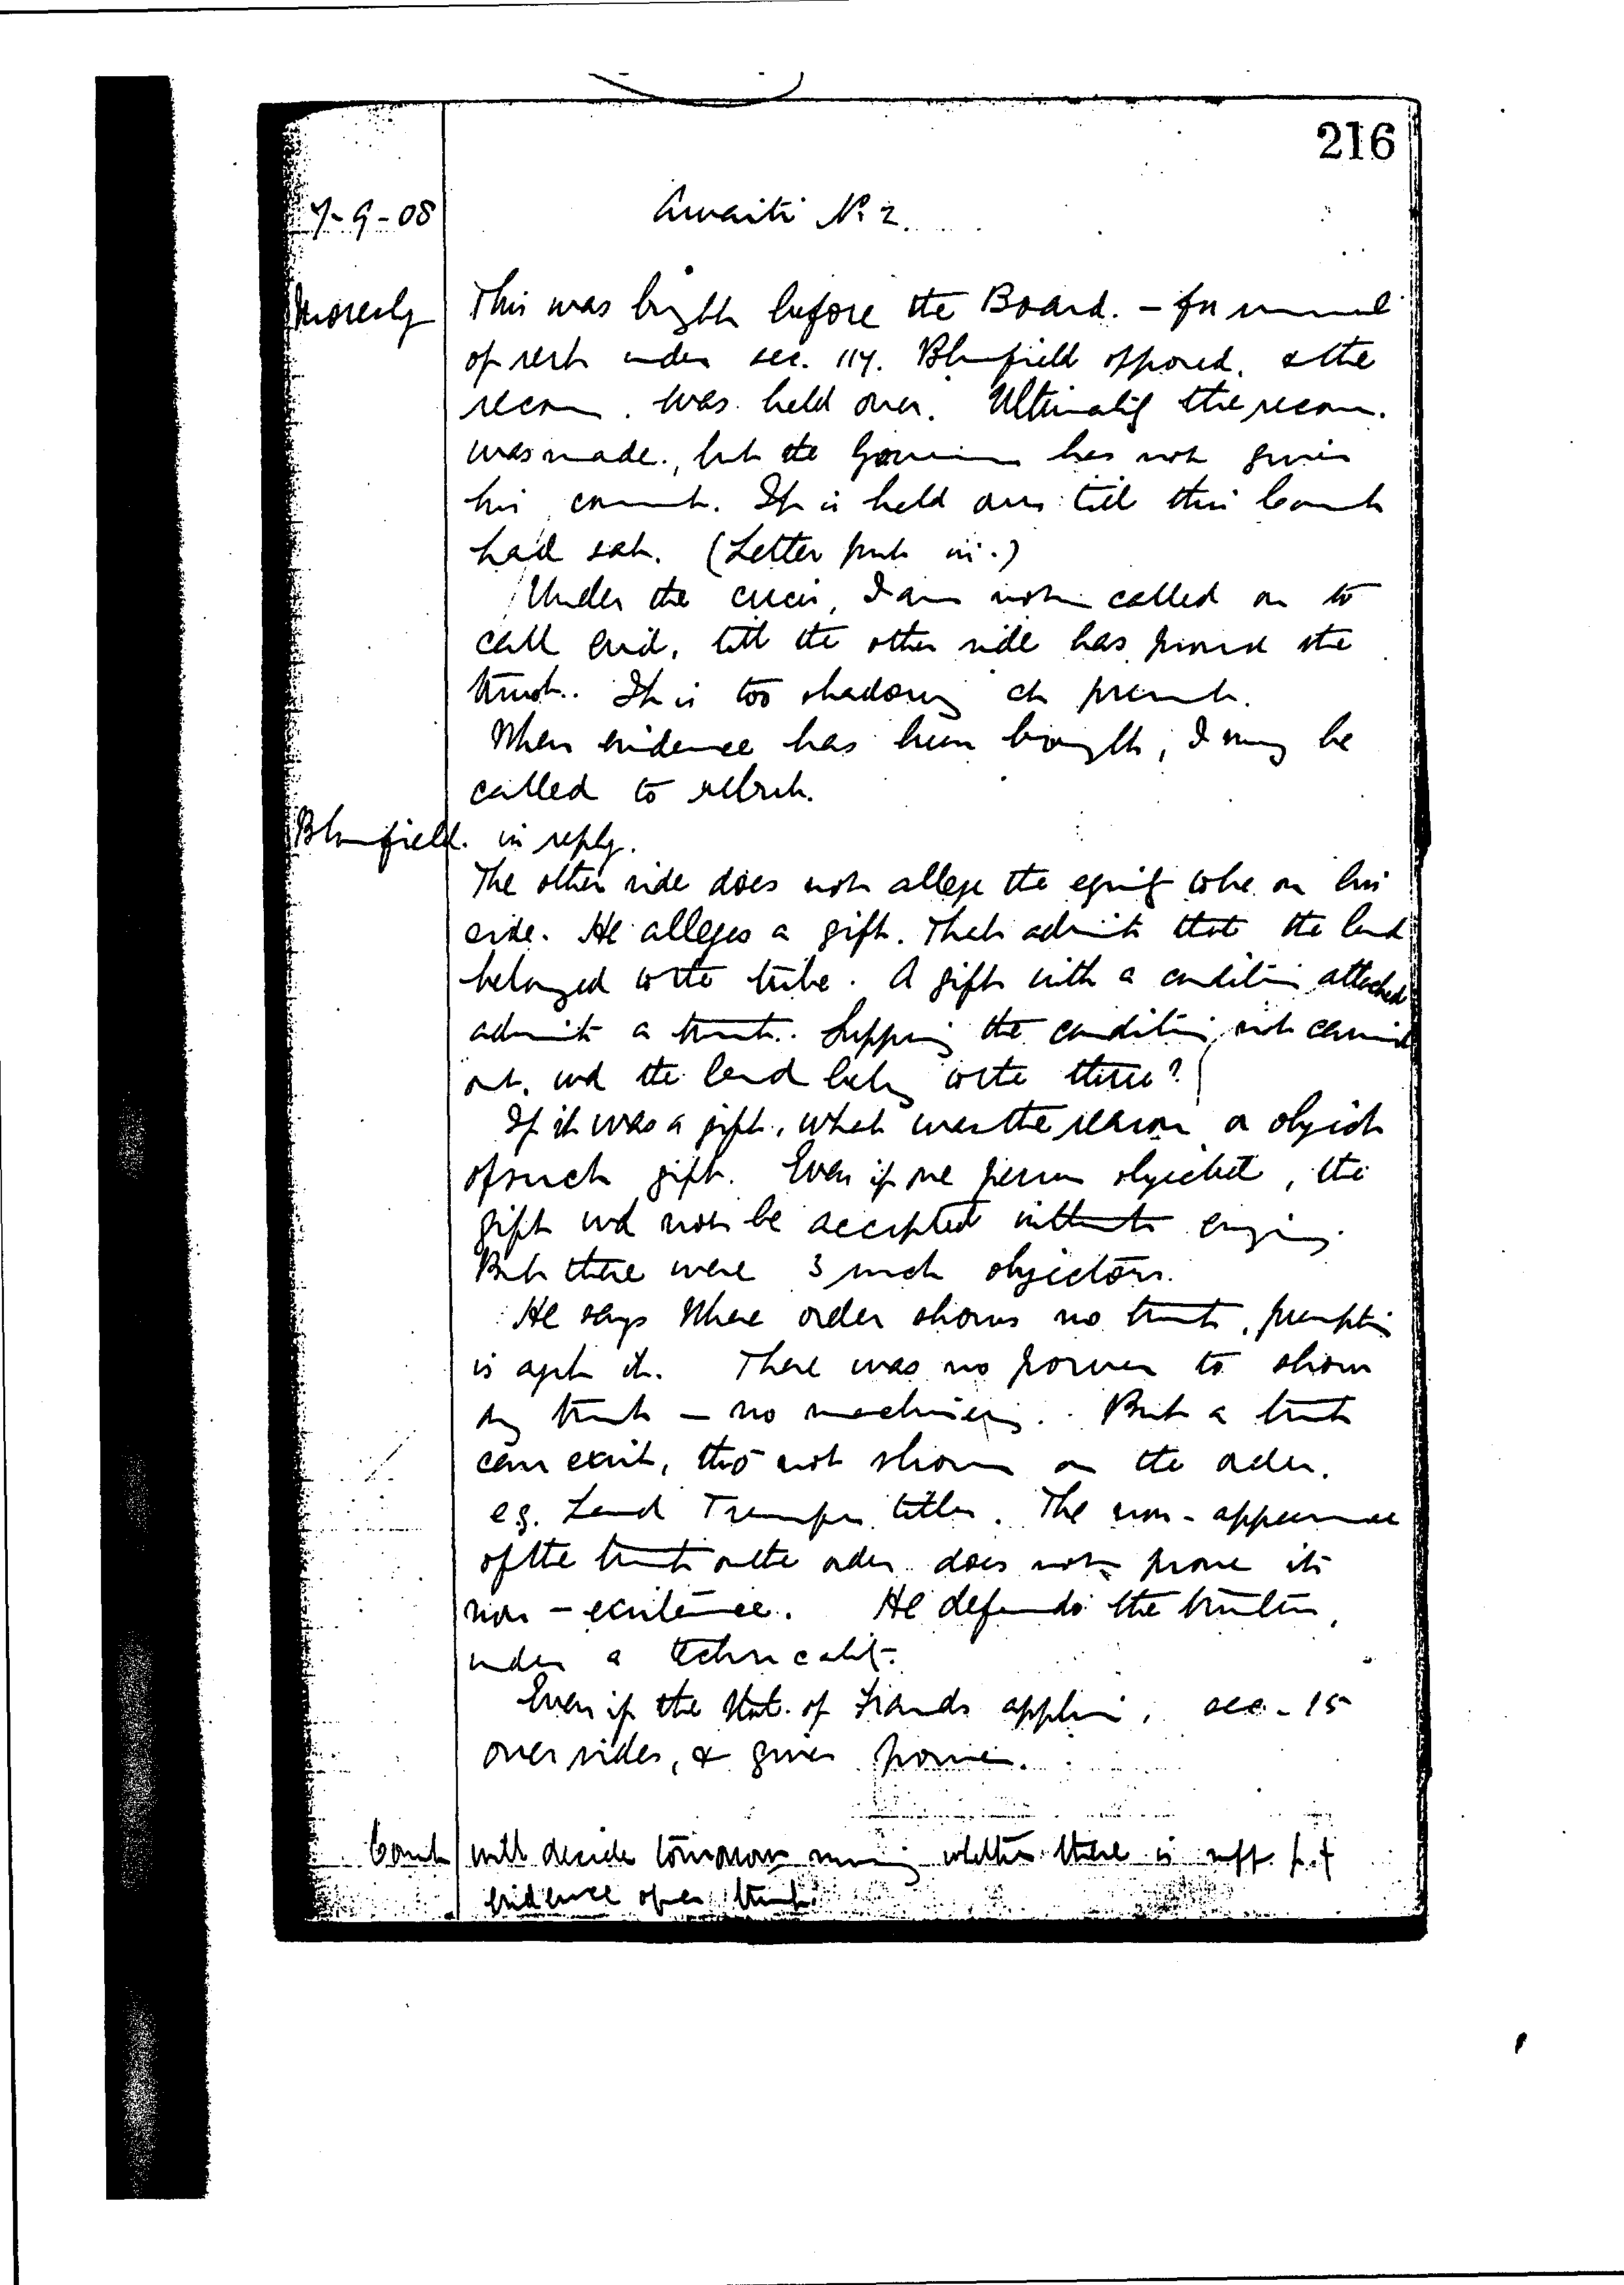 216
7-9-08 Awaiti No 2.
This was brght before the Board. - for removal
of restn under sec. 117. Blomfield opposed, & the
recom. was held over. Ultimately the recom.
was made, but the Governor has not given
his consent. It is held over till this Court
had sat. (Letter put in.)
Under the circs, I am not called on to
call evid, till the other side has proved the
trust. It is too shadowy at present.
When evidence has been brought, I may be
called to rebut.
Blomfield. in reply.
The other side does not allege the equity to be on his
side. He alleges a gift. That admits that the land
belonged to the tribe. A gift with a condition attached
admits a trust. Supposing the condition not carried
out, wd the land belong to the three?
If it was a gift, what was the reason or object
of such gift. Even if one person objected, the
gift wd not be accepted without enquiry.
But there were 3 such objectors.
He says where order shows no trust, presumption
is agst it. There was no power to show
any trust - no machinery. But a trust
can exist, tho' not shown on the order.
e.g. Land Transfer titles. The non-appearance
of the trust on the order does not prove its
non-existence. He defends the trustees
under a technicality.
Even if the Stat. of Frauds applies, sec. 15
overrides, & gives power.
Court will decide tomorrow morning whether there is suff. p.f.
evidence of a trust.